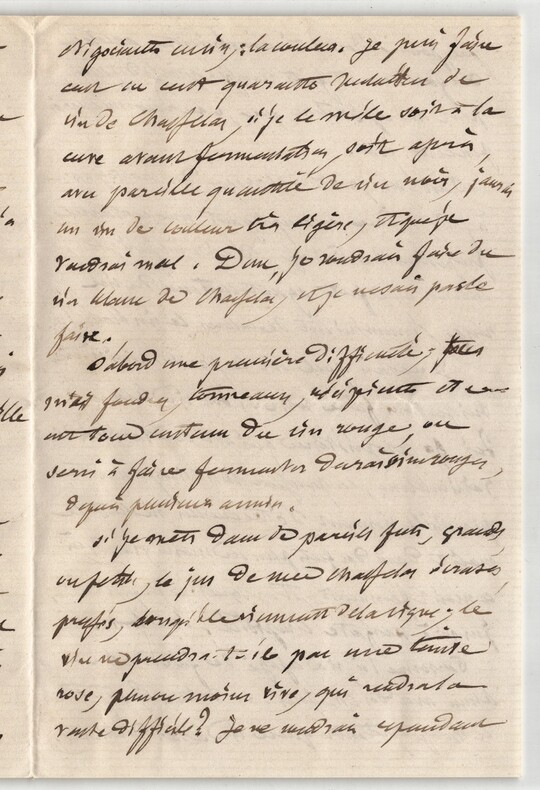 négociants en vin : la couleur. Je puis faire
cent ou cent quarante hectolitres de
vin de Chasselas, si je le mêle soit à la
cuve avant fermentation, soit après,
avec pareille quantité de vin noir, j'aurai
un vin de couleur très légère, et que je
vendrai mal. Donc, je voudrais faire du
vin blanc de Chasselas, et je ne sais pas le
faire.
D'abord une première difficulté ; tous
mes foudres, tonneaux, récipients etc
ont tous contenu du vin rouge, ou
servi à faire fermenter des raisins rouges,
depuis plusieurs années.
Si je mets dans de pareils futs, grands
ou petits, le jus de mes chasselas écrasés,
pressés, lorsqu'ils viennent de la vigne, le
vin ne prendra-t-il pas une teinte
rose, plus ou moins vive, qui rendra la
vente difficile ? Je ne voudrais cependant